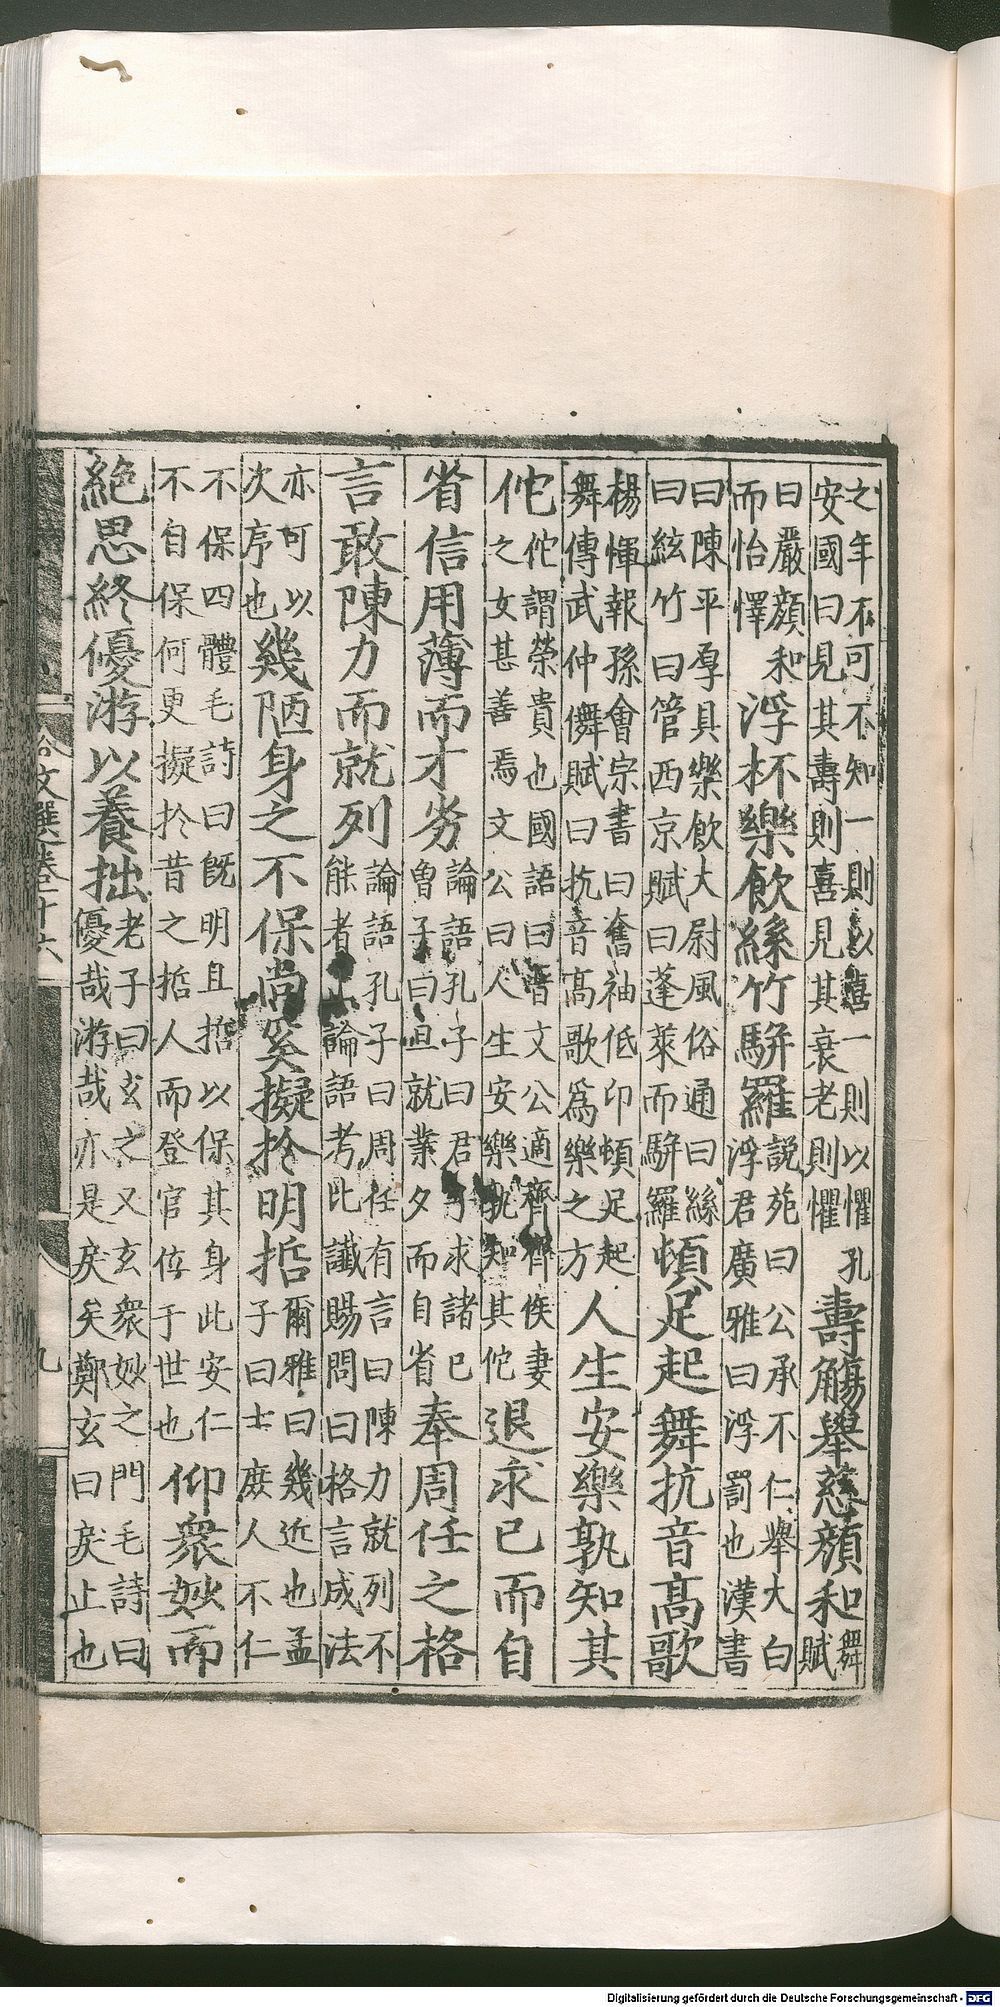 之年不可不知一則以喜一則以懼孔安國曰見其壽則喜見其衰老則懼壽觴舉慈顏和舞賦
曰嚴顏和而怡懌浮杯樂飲絲竹駢羅說苑曰公承不仁舉大白浮君廣雅曰浮罰也漢書
曰陳平厚具樂飲大尉風俗通曰絲曰絃竹曰管西京賦曰蓬萊而駢羅頓足起舞抗音高歌
楊惲報孫會宗書曰奮袖低卬頓足起舞傅武仲儛賦曰抗音高歌爲樂之方人生安樂孰知其
佗佗謂榮貴也國語曰晉文公適齊齊侯妻之女甚善焉文公曰人生安樂孰知其佗退求己而自
省信用薄而才劣論語孔子曰君子求諸己曾子曰旦就業夕而自省奉周任之格
言敢陳力而就列論語孔子曰周任有言曰陳力就列不能者止論語考比讖賜問曰格言成法
亦可以次序也幾陋身之不保尚奚擬於明哲爾雅曰幾近也孟子曰士庶人不仁
不保四體毛詩曰旣明且哲以保其身此安仁不自保何更擬於昔之哲人而登官位于世也仰衆妙而
絶思終優游以養拙老子曰玄之又玄衆妙之門毛詩曰優哉游哉亦是戾矣鄭玄曰戾止也
文選卷十六
九
Digitalisierung gefördert durch die Deutsche Forschungsgemeinschaft - DFG